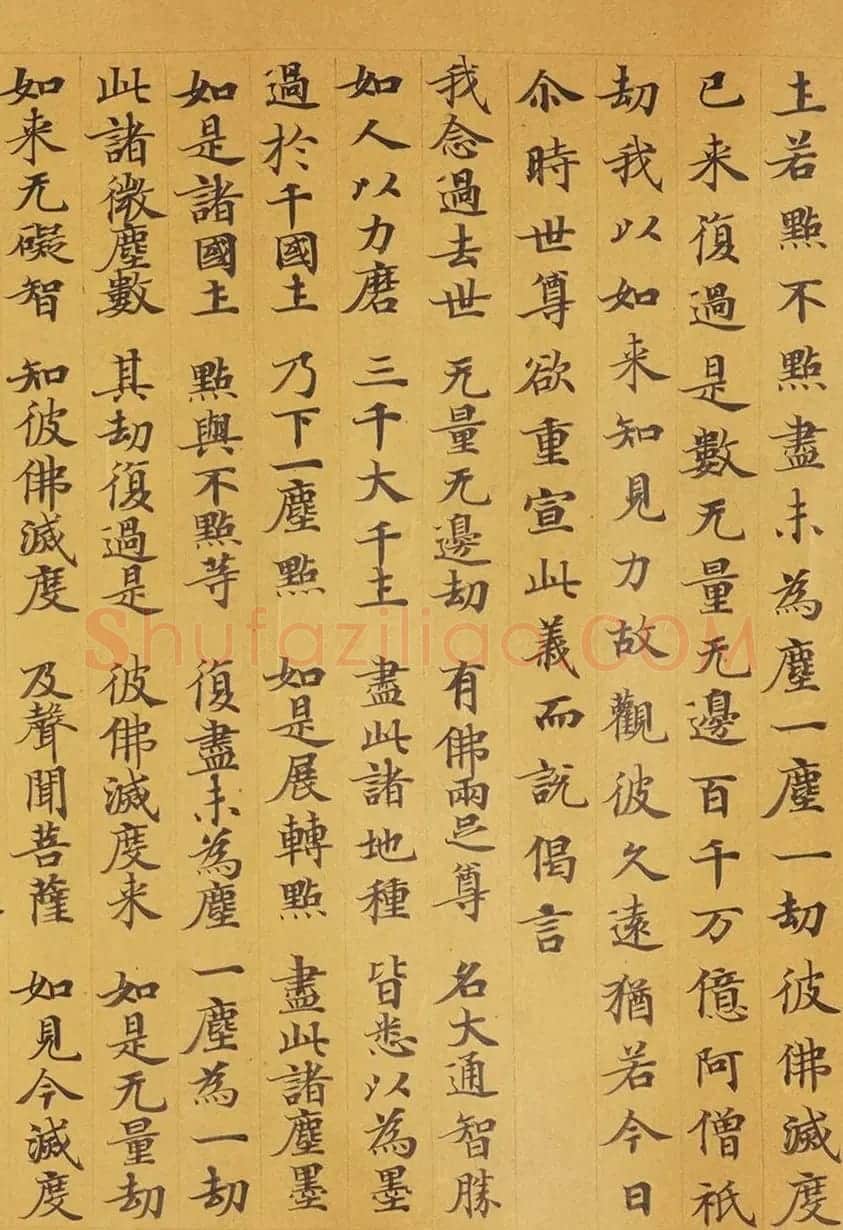 土若點不點盡末為塵一塵一劫彼佛滅度
已来復過是數无量无邊百千万億阿僧祇
劫我以如来知見力故觀彼久遠猶若今日
尒時世尊欲重宣此義而説偈言
我念過去世 无量无邊劫 有佛兩足尊 名大通智勝
如人以力磨 三千大千土 盡此諸地種 皆悉以為墨
過於千國土 乃下一塵點 如是展轉點 盡此諸塵墨
如是諸國土 點與不點等 復盡末為塵 一塵為一劫
此諸微塵數 其劫復過是 彼佛滅度来 如是无量劫
如来无礙智 知彼佛滅度 及聲聞菩薩 如見今滅度
Shufaziliao.COM